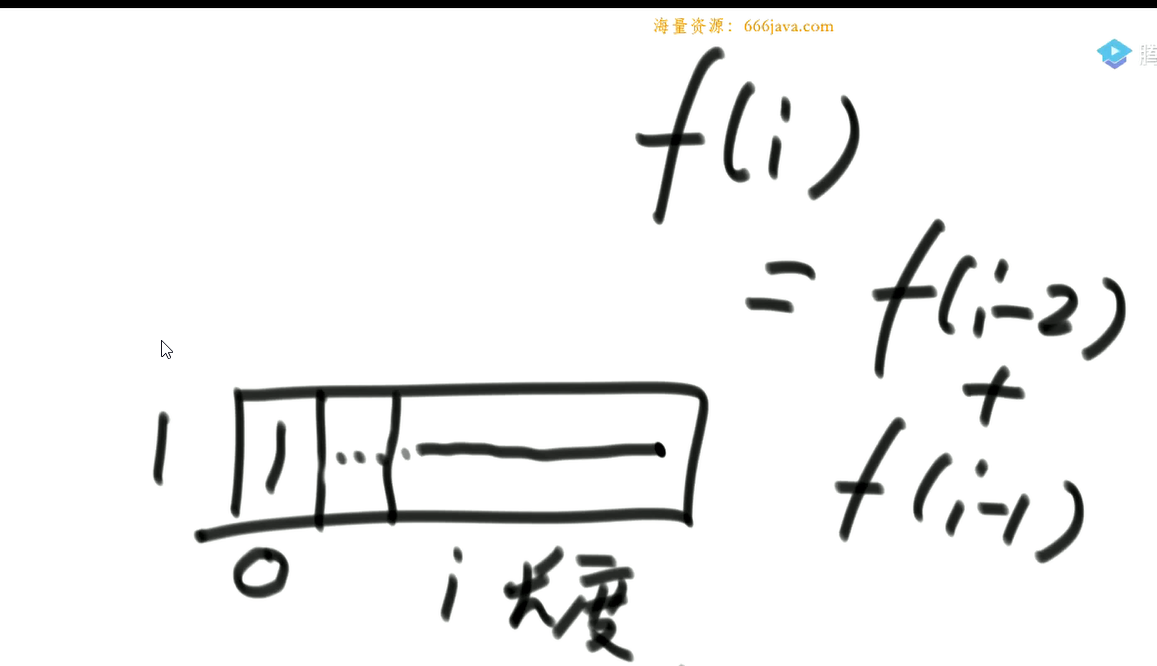 海量资源：666java.com
腾
f(i)
= f(i-2)
+
f(i-1)
1 1 ....
0 i 长度